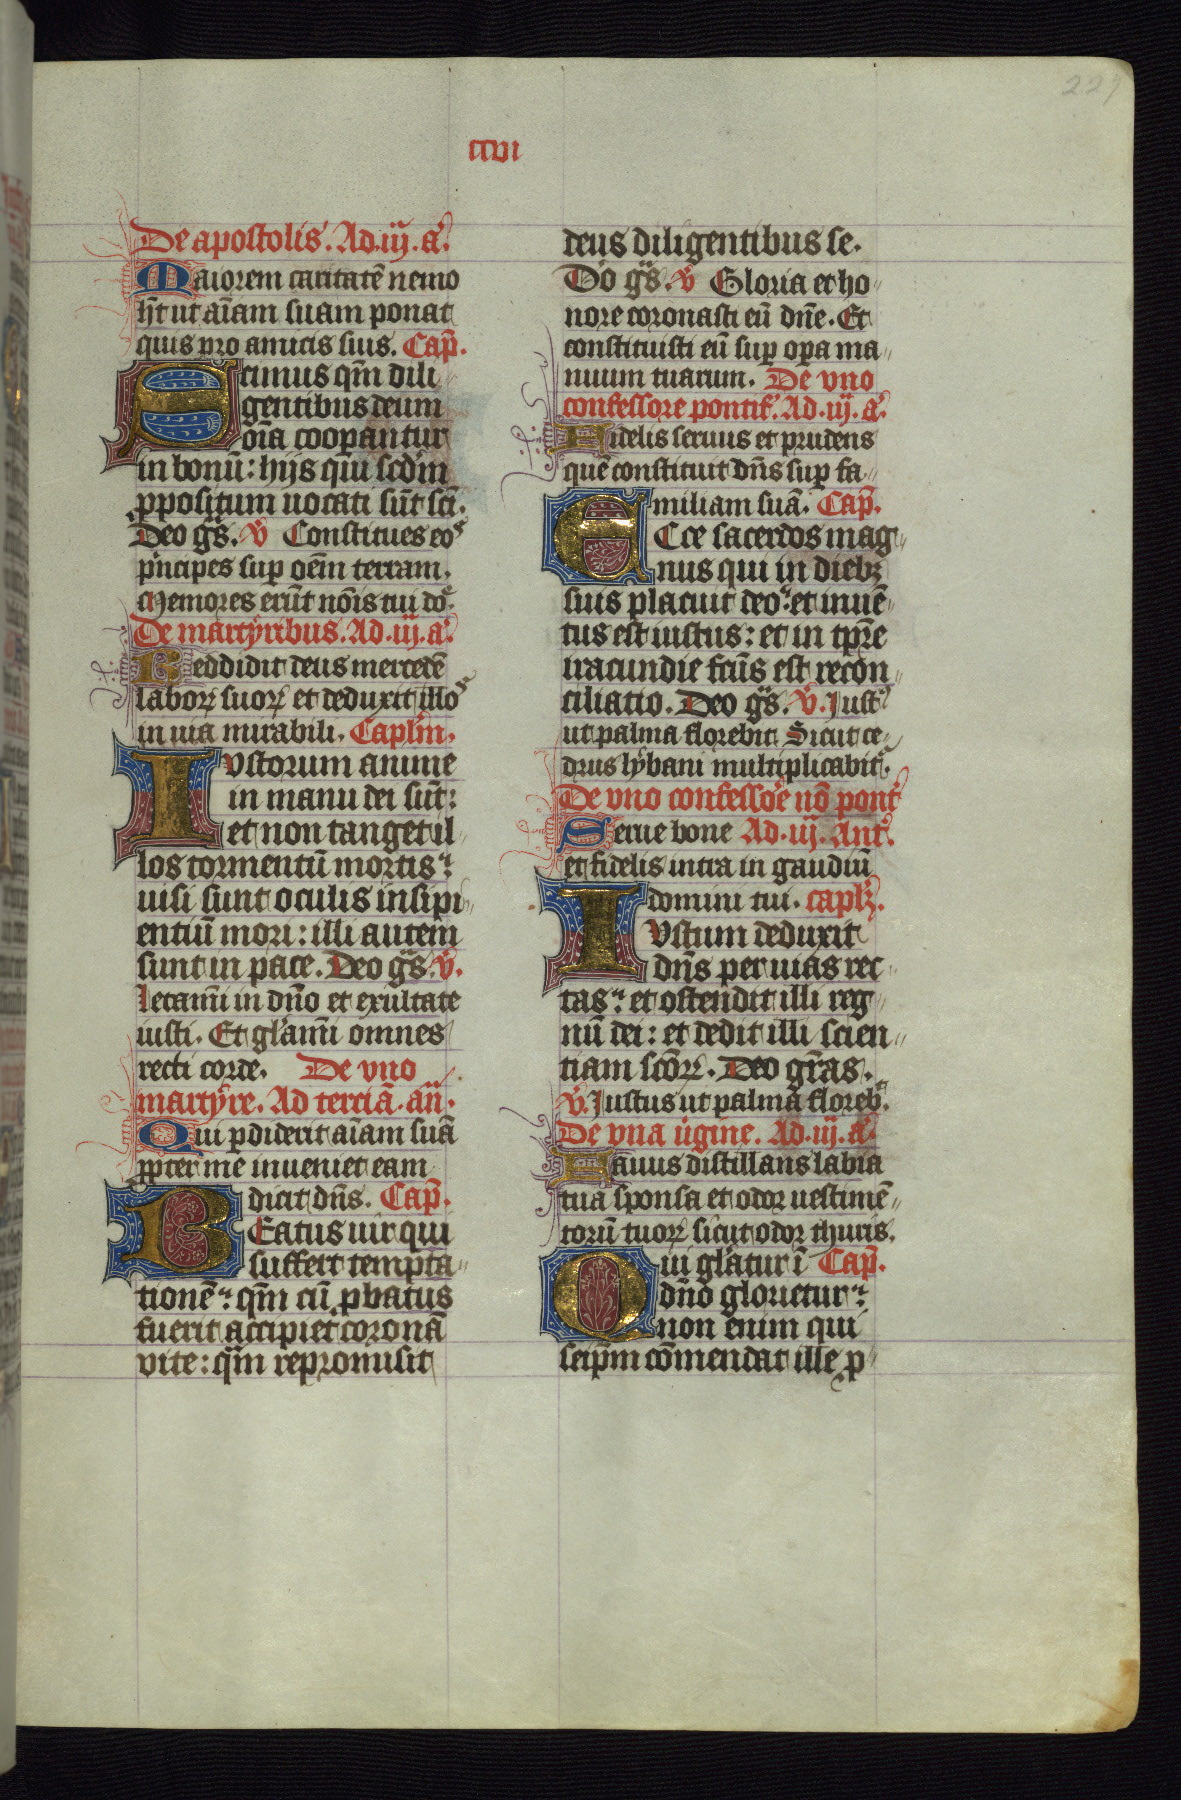 227
ccvi
De apostolis. Ad .iij. a͞.
Maiorem caritatē nemo
h͞t ut a͞iam suam ponat
quis pro amicis suis. Cap͞.
Scimus qm̄ dili
gentibus deum
oīa coopantur
in bonū: hijs qui scd̄m
ppositum uocati sūt sc̄i.
Deo gr̄s. v̄ Constitues eos
pⁱncipes sup oēm terram.
Memores erūt nōis tui do͞.
De martyribus. Ad .iij. a͞.
Reddidit deus mercedē
laboꝝ suoꝝ et deduxit illos
in uia mirabili. Caplm̄.
Iustorum anime
in manu dei sūt:
et non tanget il
los tormentū mortis:
uisi sunt oculis insipi
entiū mori: illi autem
sunt in pace. Deo gr̄s. v̄.
letami͞ in dn̄o et exultate
iusti. Et gl̄ami͞ omnes
recti corde. De vno
martyre. Ad terciā. an̄.
Qui pdiderit a͞iam suā
ppter me inueniet eam
dicit dn̄s. Cap͞.
Beatus uir qui
suffert tempta
tionē: qm̄ cū pbatus
fuerit accipiet coronā
vite: qm̄ repromisit
deus diligentibus se.
Do gr̄s. v̄ Gloria et ho
nore coronasti eū dn̄e. Et
constituisti eū sup opa ma
nuum tuarum. De vno
confessore pontif͞. Ad .iij. a͞.
Fidelis seruus et prudens
quē constituit dn̄s sup fa
miliam suā. Cap͞.
Ecce sacerdos mag
nus qui in diebꝫ
suis placuit deo: et inuē
tus est iustus: et in tpr̄e
iracundie fc̄us est recon
ciliatio. Deo gr̄s. v̄. Just͞
ut palma florebit Sicut ce
drus lybani multiplicabit͞.
De vno confessoͬe nō pont͞
Serue bone Ad .iij. Ant͞.
et fidelis intra in gaudiū
domini tui. caplꝫ.
Iustum deduxit
dn̄s per uias rec
tas: et ostendit illi reg
nū dei: et dedit illi scien
tiam sc̄oꝝ. Deo gr̄as.
v̄. Justus ut palma floreb͞.
De vna ūgine. Ad .iij. a͞.
Fauus distillans labia
tua sponsa et odor uestimē
torū tuoꝝ sicut odor thuris.
Qui gl̄atur ī Cap͞.
dn̄o glorietur:
non enim qui
seip̄m cōmendat ille p